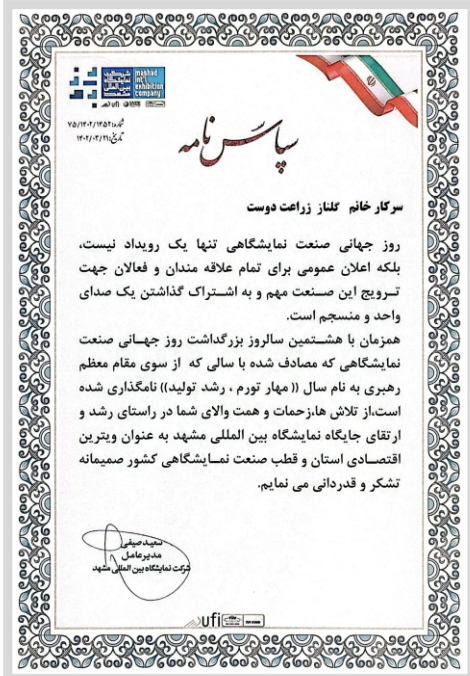 mashad
int'l
exhibition
company
ufi
شماره: ۷۵/۱۴۰۲/۱۴۵۲
تاریخ: ۱۴۰۲/۰۳/۲۱
سپاس نامه
سرکار خانم گلناز زراعت دوست
روز جهانی صنعت نمایشگاهی تنها یک رویداد نیست،
بلکه اعلان عمومی برای تمام علاقه مندان و فعالان جهت
ترویج این صنعت مهم و به اشتراک گذاشتن یک صدای
واحد و منسجم است.
همزمان با هشتمین سالروز بزرگداشت روز جهانی صنعت
نمایشگاهی که مصادف شده با سالی که از سوی مقام معظم
رهبری به نام سال (( مهار تورم ، رشد تولید)) نامگذاری شده
است،از تلاش ها،زحمات و همت والای شما در راستای رشد و
ارتقای جایگاه نمایشگاه بین المللی مشهد به عنوان ویترین
اقتصادی استان و قطب صنعت نمایشگاهی کشور صمیمانه
تشکر و قدردانی می نمایم.
سعید صیفی
مدیرعامل
شرکت نمایشگاه بین المللی مشهد
ufi